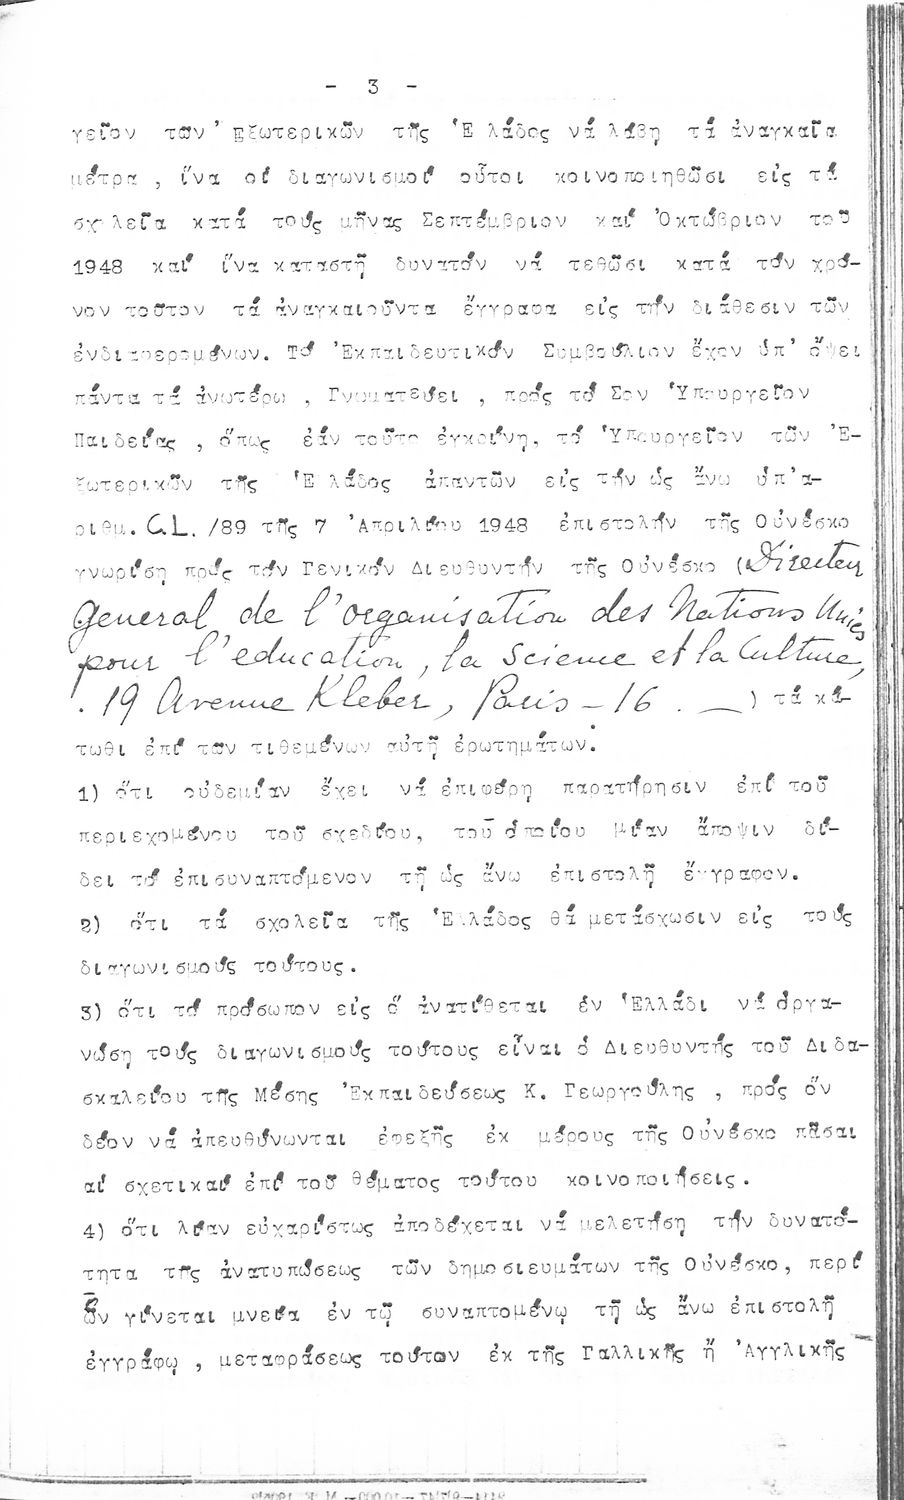 - 3 -
γεῖον τῶν Ἐξωτερικῶν τῆς Ἑλλάδος νά λάβη τά ἀναγκαῖα
μέτρα , ἵνα οἱ διαγωνισμοί οὗτοι κοινοποιηθῶσι εἰς τά
σχολεῖα κατά τούς μῆνας Σεπτέμβριον καί Ὀκτώβριον τοῦ
1948 καί ἵνα καταστῆ δυνατόν νά τεθῶσι κατά τόν χρό-
νον τοῦτον τά ἀναγκαιοῦντα ἔγγραφα εἰς τήν διάθεσιν τῶν
ἐνδιαφερομένων. Τό Ἐκπαιδευτικόν Συμβούλιον ἔχον ὑπ' ὄψει
πάντα τά ἀνωτέρω , Γνωματεύει , πρός τό Σον Ὑπουργεῖον
Παιδείας , ὅπως ἐάν τοῦτο ἐγκρίνη, τό Ὑπουργεῖον τῶν Ἐ-
ξωτερικῶν τῆς Ἑλλάδος ἀπαντῶν εἰς τήν ὡς ἄνω ὑπ'ἀ-
ριθμ. C.L. /89 τῆς 7 Ἀπριλίου 1948 ἐπιστολήν τῆς Οὐνέσκο
γνωρίση πρός τόν Γενικόν Διευθυντήν τῆς Οὐνέσκο (Directeur
General de l'organisation des Nations Unies
pour l'education, la science et la Culture,
. 19 Avenue Kleber, Paris - 16 . — ) τά κά-
τωθι ἐπί των τιθεμένων αὐτῆ ἐρωτημάτων:
1) ὅτι οὐδεμίαν ἔχει νά ἐπιφέρη παρατήρησιν ἐπί τοῦ
περιεχομένου τοῦ σχεδίου, τοῦ ὁποίου μίαν ἄποψιν δί-
δει τό ἐπισυναπτόμενον τῆ ὡς ἄνω ἐπιστολῆ ἔγγραφον.
2) ὅτι τά σχολεῖα τῆς Ἑλλάδος θά μετάσχωσιν εἰς τούς
διαγωνισμούς τούτους.
3) ὅτι τό πρόσωπον εἰς ὅ ἀνατίθεται ἐν Ἑλλάδι νά ὀργα-
νώση τούς διαγωνισμούς τούτους εἶναι ὁ Διευθυντής τοῦ Διδα-
σκαλείου τῆς Μέσης Ἐκπαιδεύσεως Κ. Γεωργούλης , πρός ὅν
δέον νά ἀπευθύνωνται ἐφεξῆς ἐκ μέρους τῆς Οὐνέσκο πᾶσαι
αἱ σχετικαί ἐπί τοῦ θέματος τούτου κοινοποιήσεις.
4) ὅτι λίαν εὐχαρίστως ἀποδέχεται νά μελετήση τήν δυνατό-
τητα τῆς ἀνατυπώσεως τῶν δημοσιευμάτων τῆς Οὐνέσκο, περί
ὧν γίνεται μνεία ἐν τῷ συναπτομένῳ τῆ ὡς ἄνω ἐπιστολῆ
ἐγγράφῳ , μεταφράσεως τούτων ἐκ τῆς Γαλλικῆς ἤ Ἀγγλικῆς